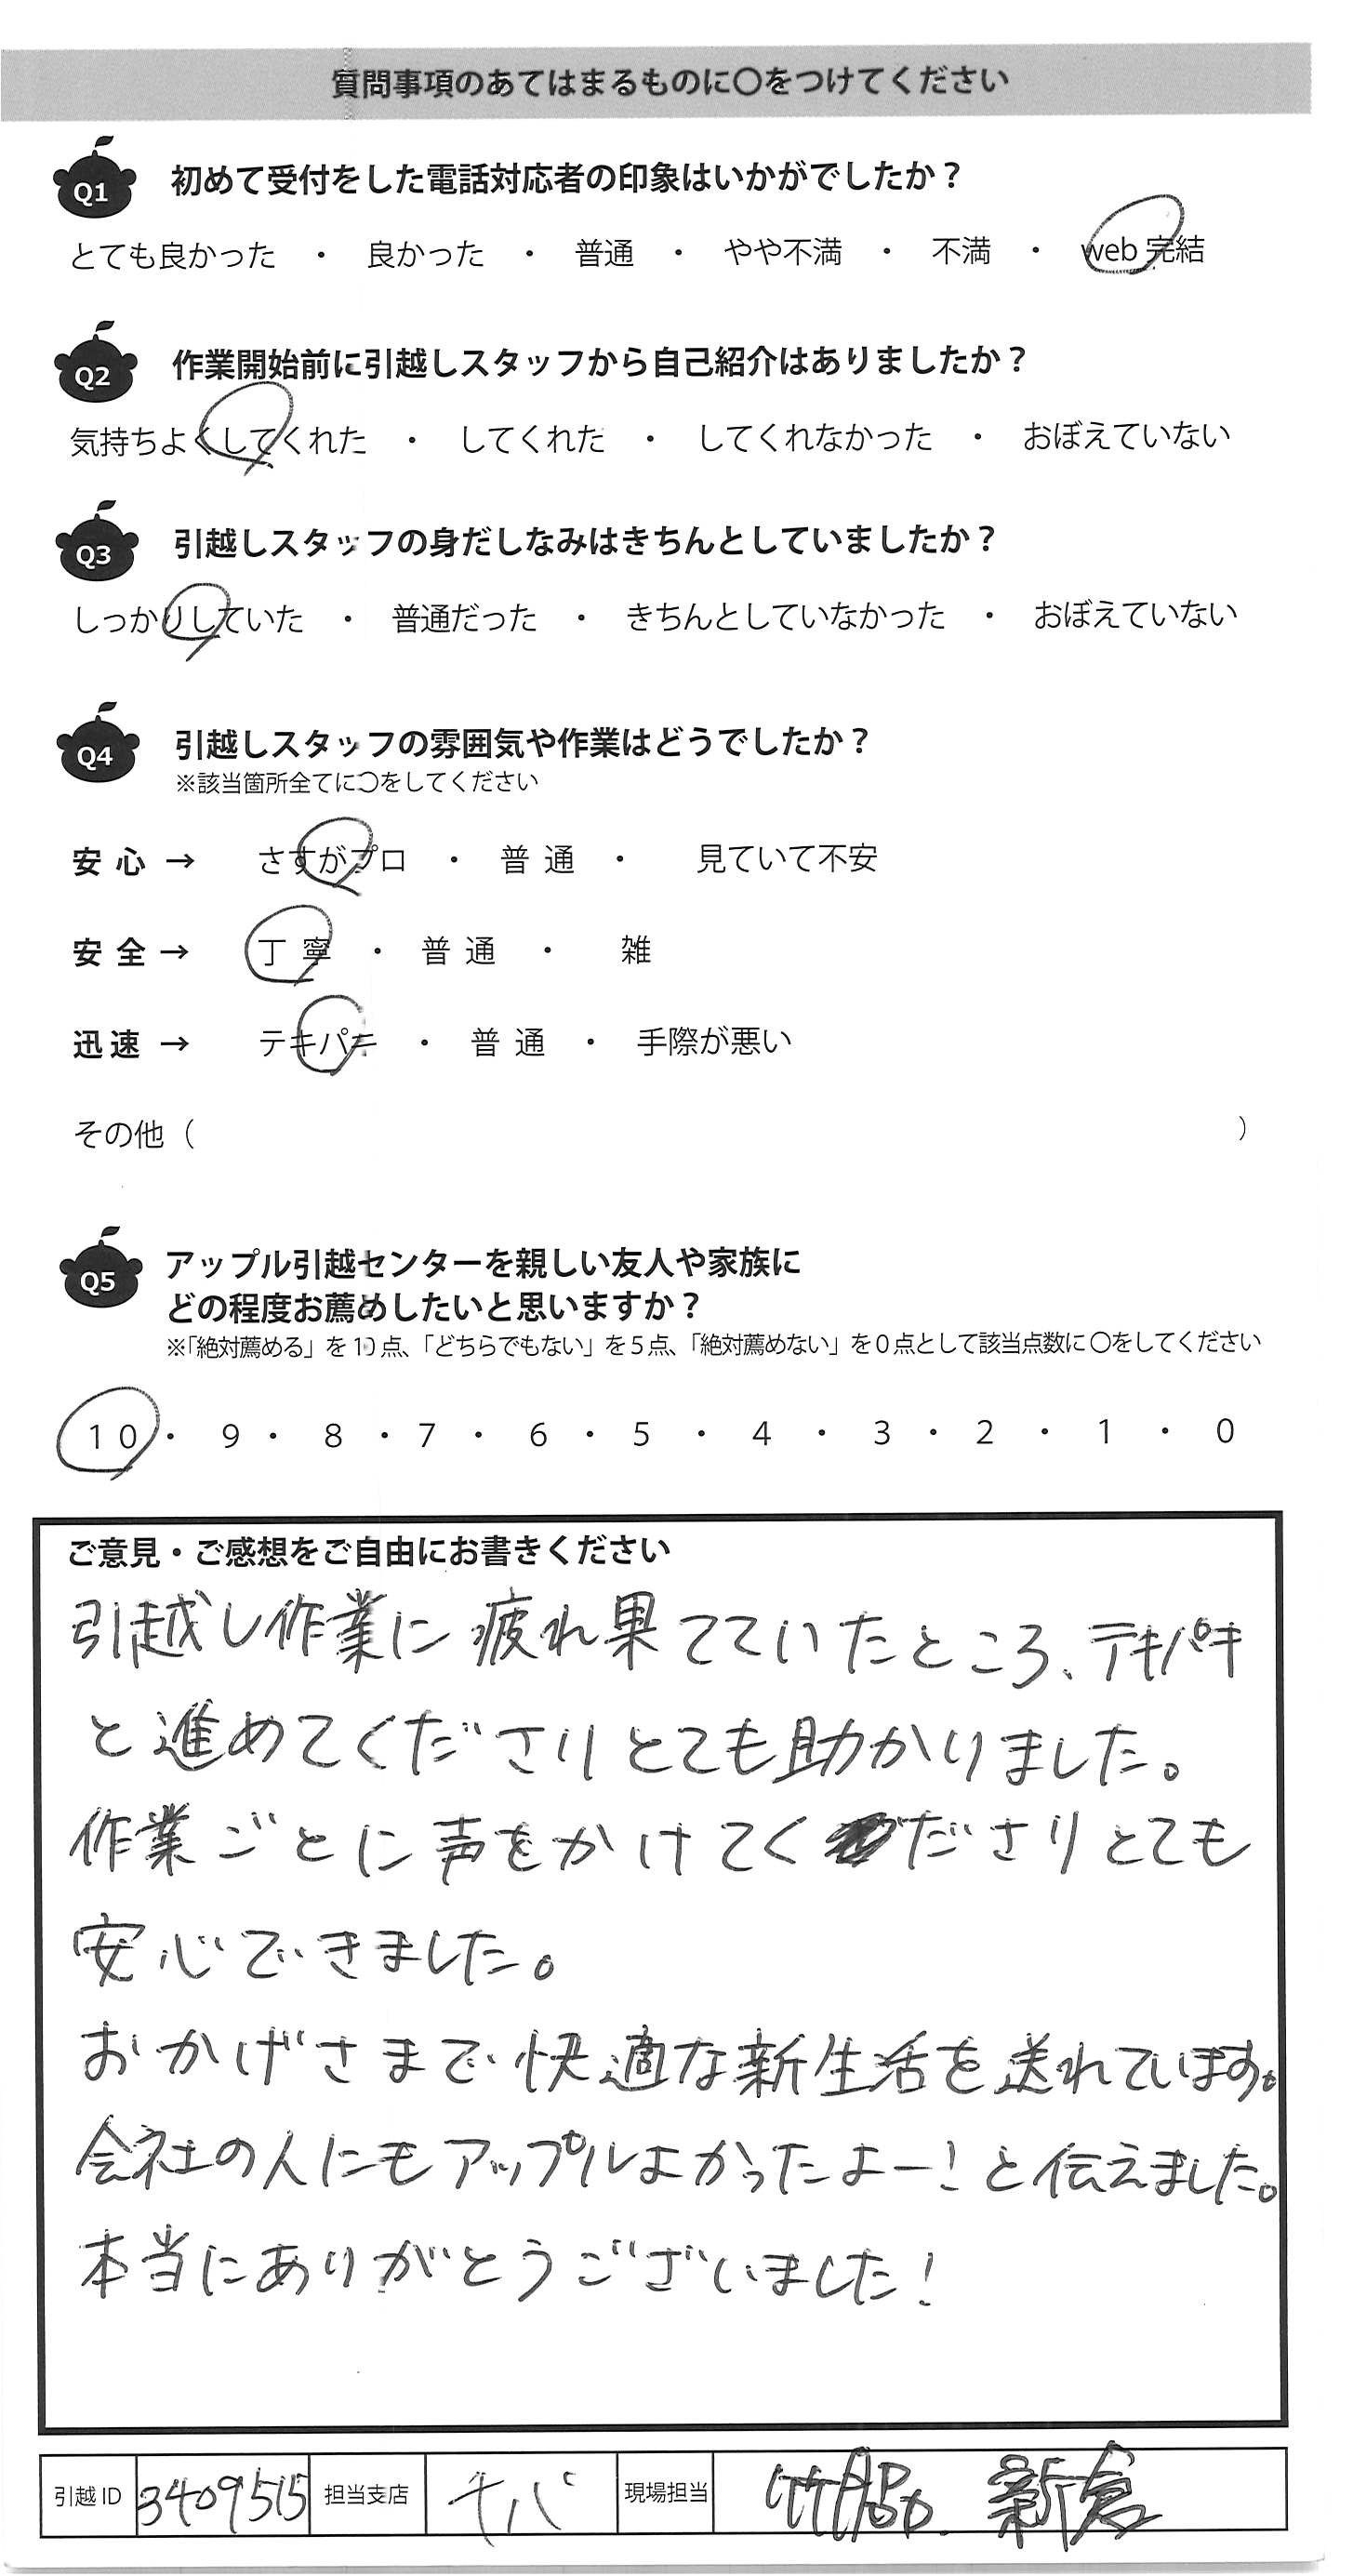 質問事項のあてはまるものに○をつけてください
Q1 初めて受付をした電話対応者の印象はいかがでしたか？
とても良かった ・ 良かった ・ 普通 ・ やや不満 ・ 不満 ・ web 完結
Q2 作業開始前に引越しスタッフから自己紹介はありましたか？
気持ちよくしてくれた ・ してくれた ・ してくれなかった ・ おぼえていない
Q3 引越しスタッフの身だしなみはきちんとしていましたか？
しっかりしていた ・ 普通だった ・ きちんとしていなかった ・ おぼえていない
Q4 引越しスタッフの雰囲気や作業はどうでしたか？
※該当箇所全てに○をしてください
安心 → さすがプロ ・ 普通 ・ 見ていて不安
安全 → 丁寧 ・ 普通 ・ 雑
迅速 → テキパキ ・ 普通 ・ 手際が悪い
その他（ ）
Q5 アップル引越センターを親しい友人や家族に
どの程度お薦めしたいと思いますか？
※「絶対薦める」を10点、「どちらでもない」を5点、「絶対薦めない」を0点として該当点数に○をしてください
10 ・ 9 ・ 8 ・ 7 ・ 6 ・ 5 ・ 4 ・ 3 ・ 2 ・ 1 ・ 0
ご意見・ご感想をご自由にお書きください
引越し作業に疲れ果てていたところ、テキパキ
と進めてくださりとても助かりました。
作業ごとに声をかけてくださりとても
安心できました。
おかげさまで快適な新生活を送れています。
会社の人にもアップルよかったよー！と伝えました。
本当にありがとうございました！
引越ID 3409515 担当支店 千バ 現場担当 新倉